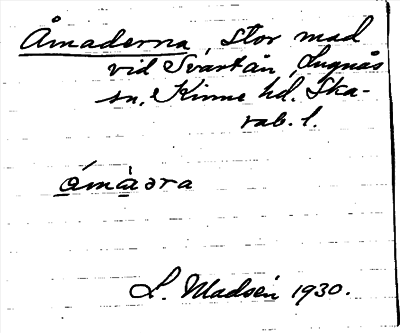 Åmaderna, stor mad
vid Svartån, Lugnås
sn, Kinne hd. Ska-
rab. l.
ámàəra
L. Madsén 1930.